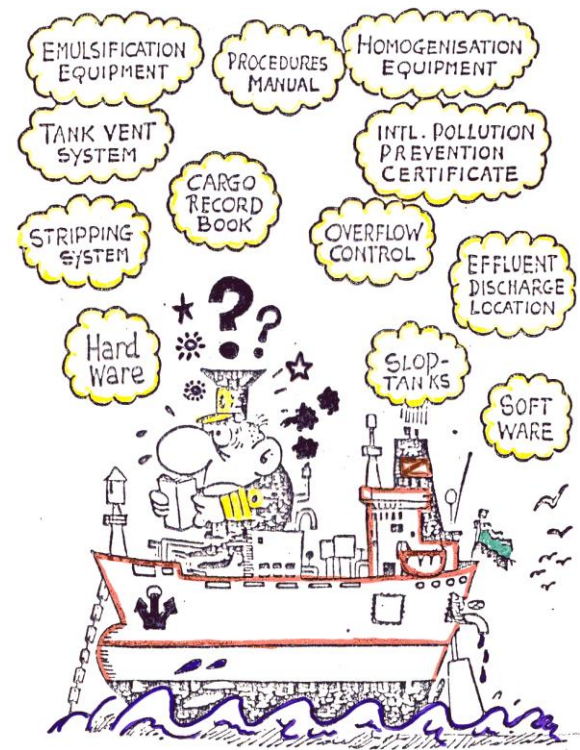 EMULSIFICATION
EQUIPMENT
PROCEDURES
MANUAL
HOMOGENISATION
EQUIPMENT
TANK VENT
SYSTEM
INTL. POLLUTION
PREVENTION
CERTIFICATE
CARGO
RECORD
BOOK
STRIPPING
SYSTEM
OVERFLOW
CONTROL
EFFLUENT
DISCHARGE
LOCATION
Hard
Ware
SLOP-
TANKS
SOFT
WARE
??
N